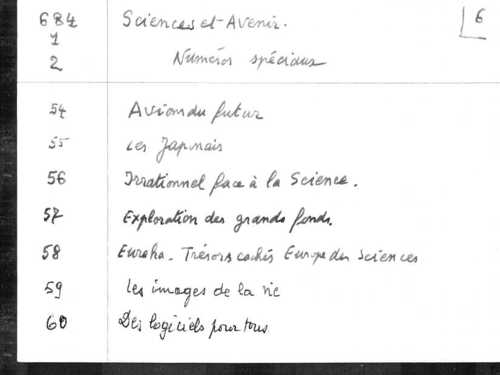 684 Sciences et Avenir. 6
1
2 Numéros spéciaux
54 Avion du futur
55 Les Japonais
56 Irrationnel face à la Science.
57 Exploration des grands fonds.
58 Eureka. Trésors cachés Europe des Sciences
59 Les images de la vie
60 Des logiciels pour tous